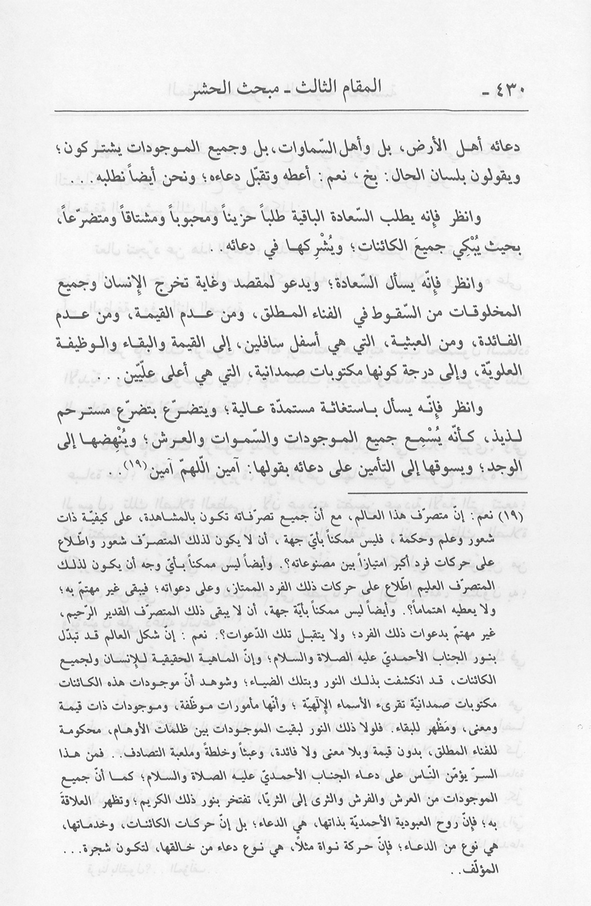 ٤٣٠ - المقام الثالث - مبحث الحشر
دعائه أهل الأرض، بل وأهل السّماوات، بل وجميع الموجودات يشتركون؛
ويقولون بلسان الحال: بخ، نعم: أعطه وتقبّل دعاءه؛ ونحن أيضاً نطلبه...
وانظر فإنه يطلب السّعادة الباقية طلباً حزيناً ومحبوباً ومشتاقاً ومتضرّعاً،
بحيث يُبْكِي جميعَ الكائنات؛ ويُشْرِكها في دعائه..
وانظر فإنّه يسأل السّعادة؛ ويدعو لمقصد وغاية تخرج الإنسان وجميع
المخلوقات من السّقوط في الفناء المطلق، ومن عدم القيمة، ومن عدم
الفائدة، ومن العبثية، التي هي أسفل سافلين، إلى القيمة والبقاء والوظيفة
العلويّة، وإلى درجة كونها مكتوبات صمدانية، التي هي أعلى علّيّين...
وانظر فإنّه يسأل باستغاثة مستمدّة عالية؛ ويتضرّع بتضرّع مسترحم
لذيذ، كأنّه يُسْمِع جميع الموجودات والسّموات والعرش؛ ويُنْهِضها إلى
الوجد؛ ويسوقها إلى التأمين على دعائه بقولها: آمين اللّهمّ آمين(١٩)..
(١٩) نعم: إنّ متصرّف هذا العالم، مع أنّ جميع تصرّفاته تكون بالمشاهدة، على كيفيّة ذات
شعور وعلم وحكمة، فليس ممكناً بأيّ جهة، أن لا يكون لذلك المتصرّف شعور واطّلاع
على حركات فرد أكبر امتيازاً بين مصنوعاته؟. وأيضاً ليس ممكناً بأيّ وجه أن يكون لذلك
المتصرّف العليم اطّلاع على حركات ذلك الفرد الممتاز، وعلى دعواته؛ فيبقى غير مهتم به؛
ولا يعطيه اهتماماً؟. وأيضاً ليس ممكناً بأيّة جهة، أن لا يبقى ذلك المتصرّف القدير الرّحيم،
غير مهتمّ بدعوات ذلك الفرد؛ ولا يتقبل تلك الدّعوات؟. نعم: إن شكل العالم قد تبدّل
بنور الجناب الأحمديّ عليه الصلاة والسلام؛ وإنّ الماهية الحقيقية للإنسان ولجميع
الكائنات، قد انكشفت بذلك النور وبتلك الضياء؛ وشوهد أنّ موجودات هذه الكائنات
مكتوبات صمدانيّة تقرىء الأسماء الإلٰهيّة؛ وأنّها مأمورات موظّفة، وموجودات ذات قيمة
ومعنى، ومَظْهر للبقاء. فلولا ذلك النور لبقيت الموجودات بين ظلمات الأوهام، محكومة
للفناء المطلق، بدون قيمة وبلا معنى ولا فائدة، وعبثاً وخلطةً وملعبة التصادف.. فمن هذا
السرّ يؤمّن النّاس على دعاء الجناب الأحمديّ عليه الصلاة والسلام؛ كما أنّ جميع
الموجودات من العرش والفرش والثرى إلى الثريّا، تفتخر بنور ذلك الكريم؛ وتظهر العلاقةَ
به؛ فإنّ روح العبودية الأحمديّة بذاتها، هي الدعاء؛ بل إنّ حركات الكائنات، وخدماتها،
هي نوع من الدعاء؛ فإنّ حركة نواة مثلاً، هي نوع دعاء من خالقها، لتكون شجرة...
المؤلّف..